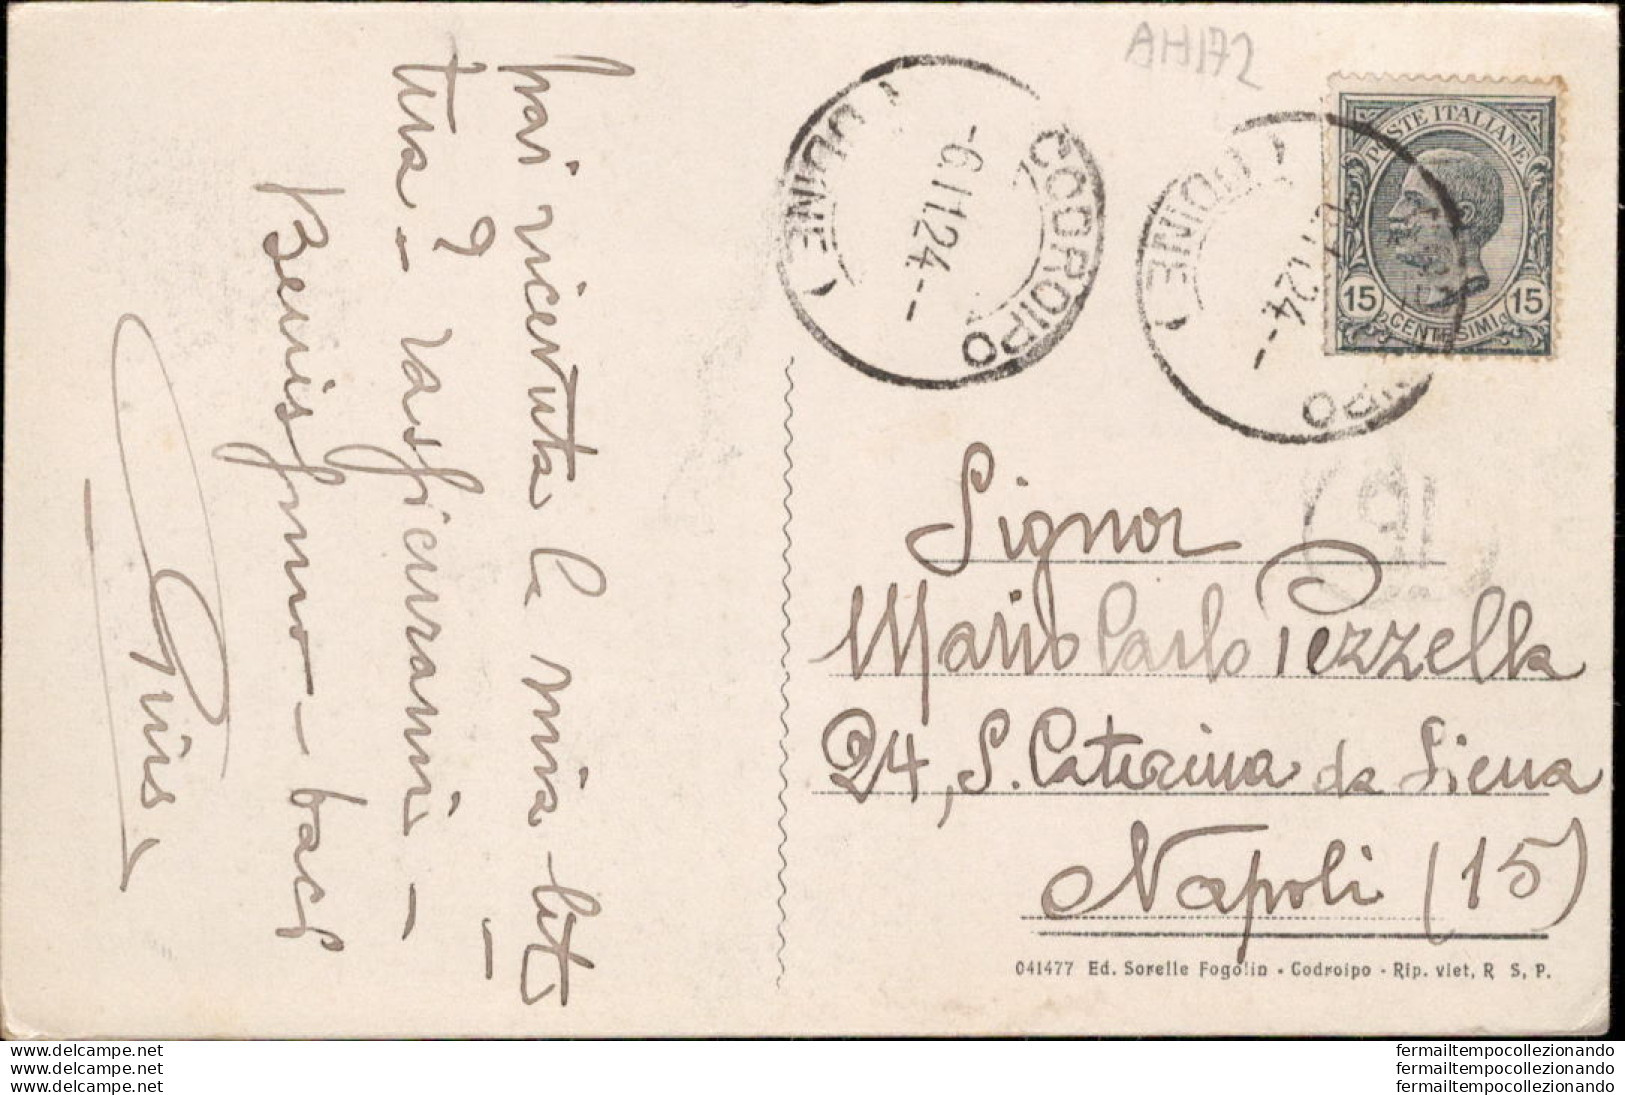 AH172
CODROIPO
(UDINE)
-6.11.24--
POSTE ITALIANE
15 15
CENTESIMI
(UDINE)
24--
IPO
hai ricevuta la mia let
tera - ? rassicurami -
Benissimo - baci
Signor
Mario Carlo Pezzella
24, S. Caterina da Siena
Napoli (15)
041477 Ed. Sorelle Fogolin - Codroipo - Rip. viet, R S, P.
www.delcampe.net
www.delcampe.net
www.delcampe.net
fermailtempocollezionando
fermailtempocollezionando
fermailtempocollezionando